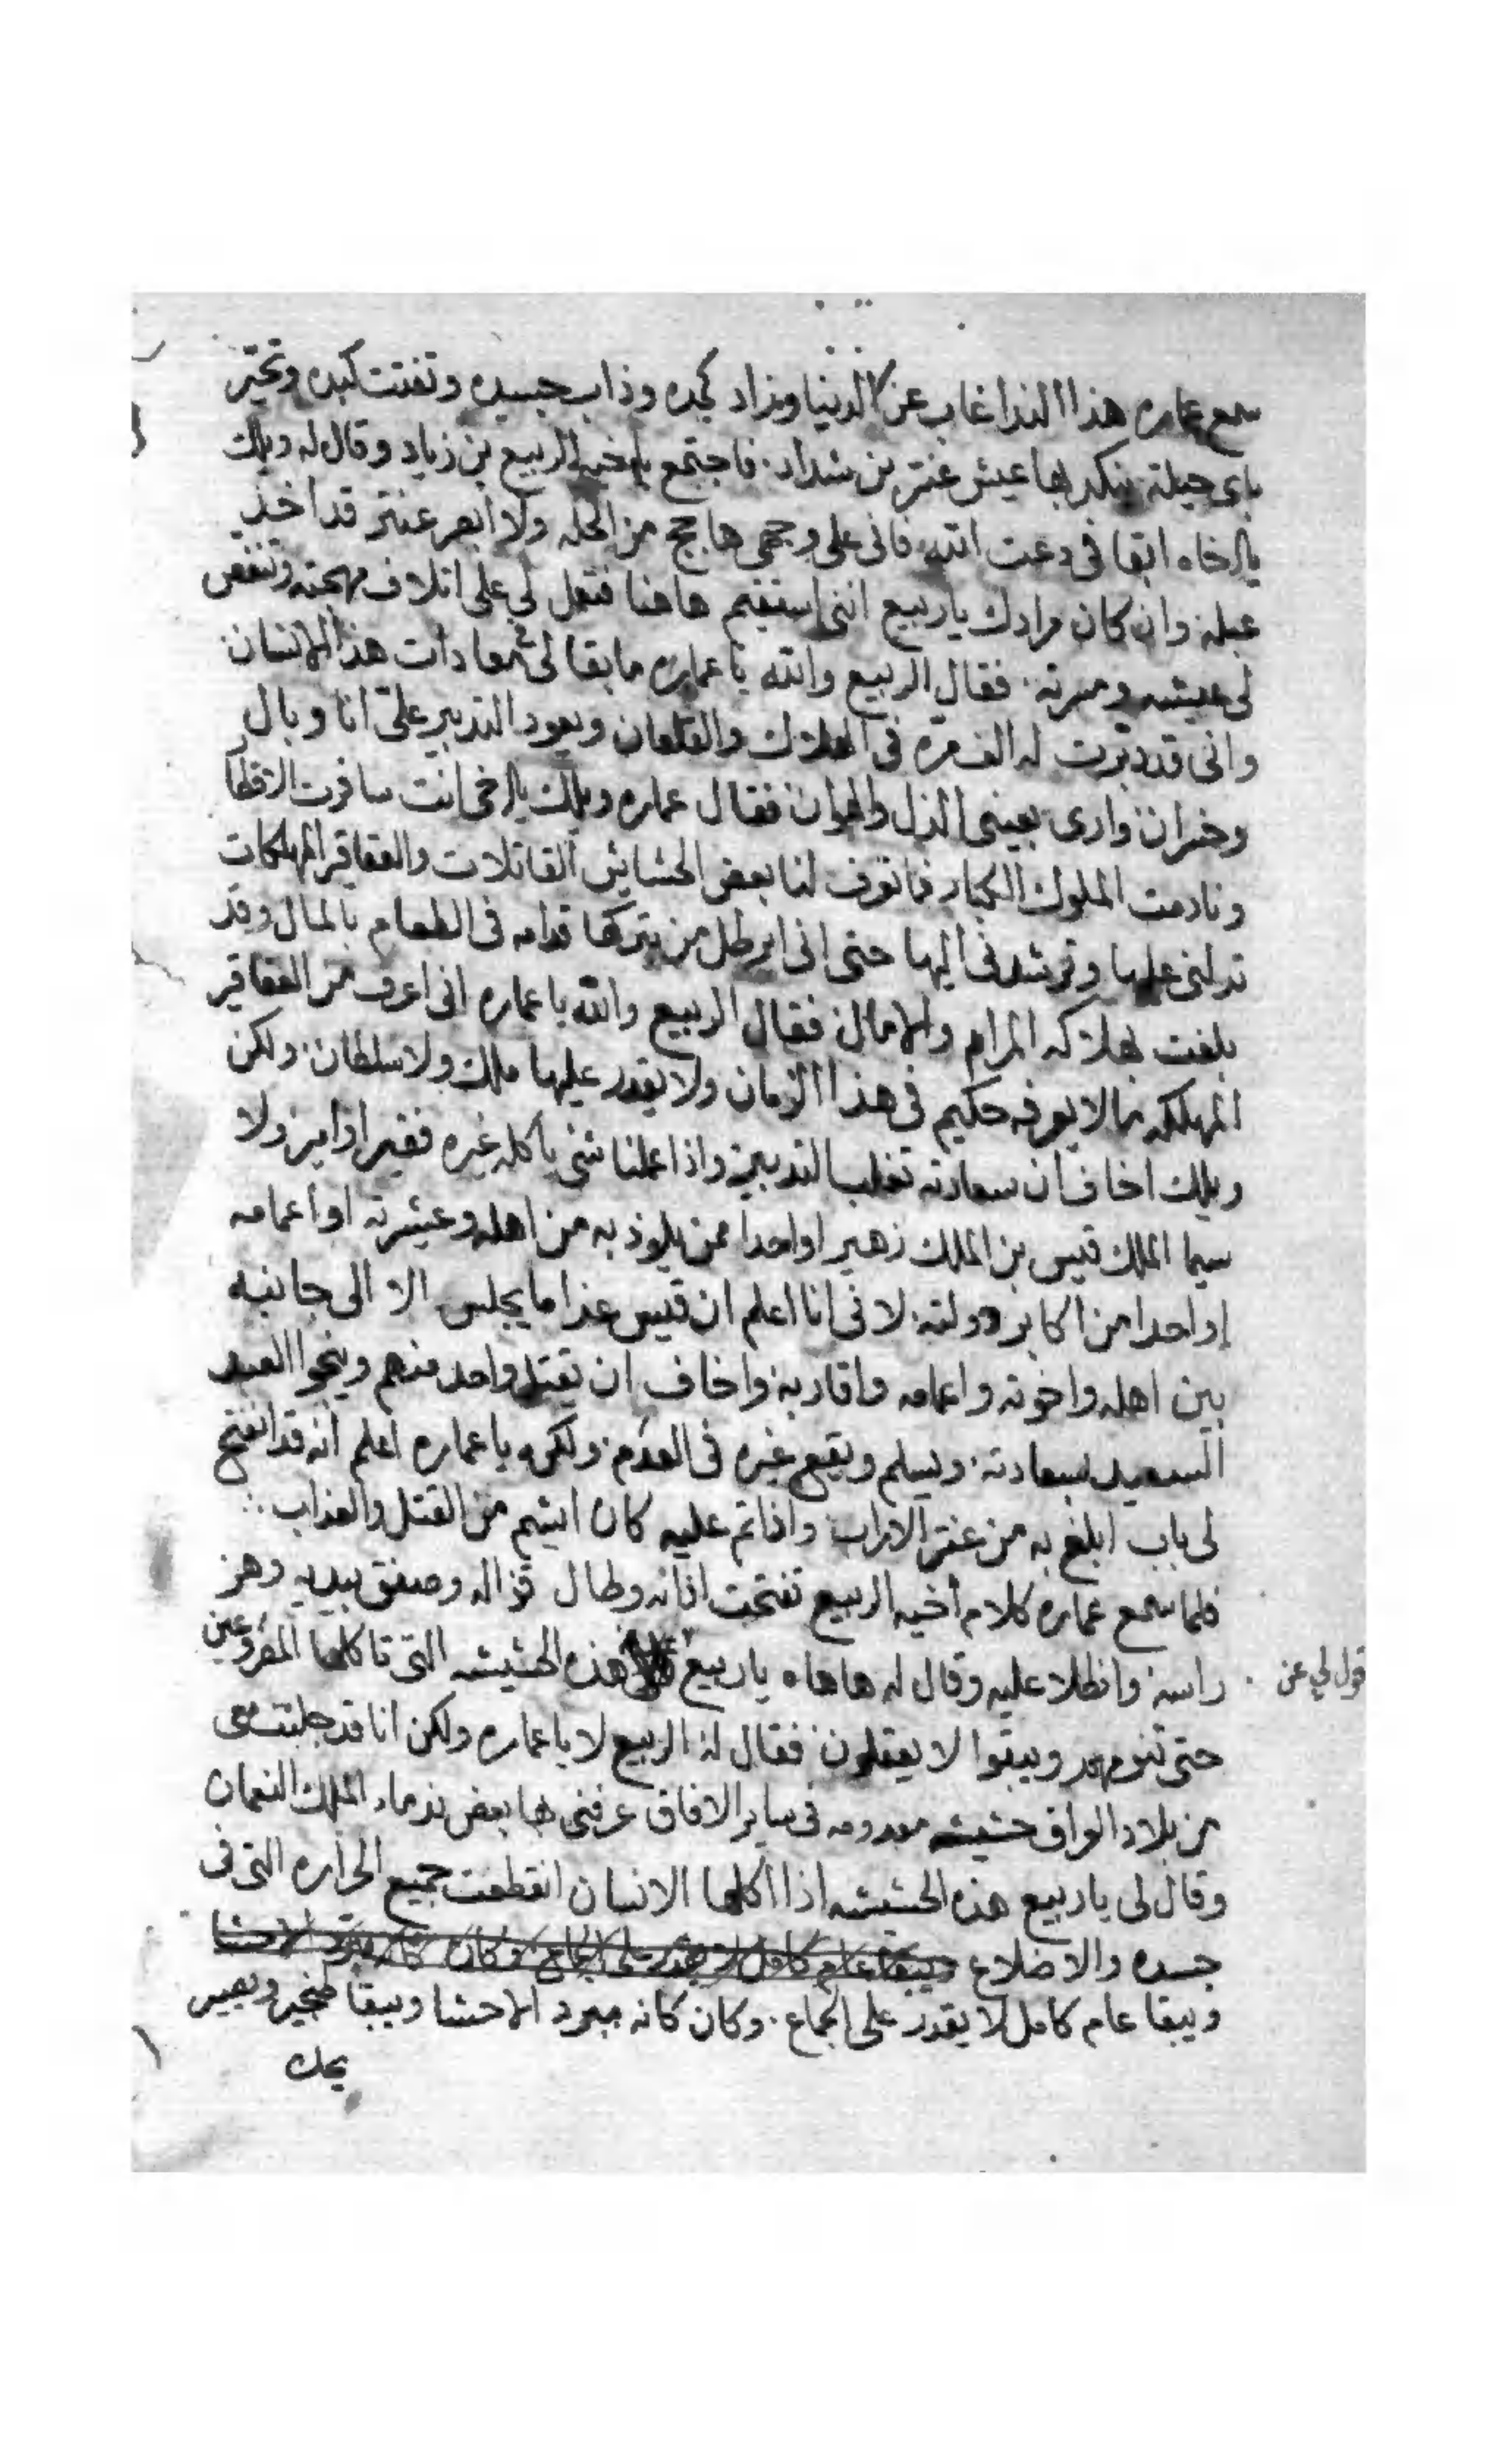 سمع عماره هذا الندا غاب عن الدنيا وزاد كمده وذاب جسده وتفتت كبده وتحير
باي حيلة ينكد بها عيش عنتر بن شداد. فاجتمع باخيه الربيع بن زياد وقال له ويلك
يالاخاه ابقا في دعت الله فاني على وجهي هاجج من الحله ولا ابصر عنتر قد اخذ
عبله وان كان مرادك ياربيع انني استقيم هاهنا فتعمل لي على اتلاف مهجته وتنغص
لي عيشه ومسرته. فقال الربيع والله ياعماره مابقا لي معادات هذا الانسان
واني قد دبرت له الف مره في الهلاك والقلعان ويعود التدبير علي انا وبال
وخسران واري بعيني الذل والهوان فقال عماره ويلك يالاخي انت سافرت
ونادمت الملوك الكبار فاتعرف لنا بعض الحشايش القاتلات والعقاقر المهلكات
تدلني عليها وترشدني اليها حتى اني ابرطل من يتركها قدامه في الطعام بالمال وقد
بلغت بهلاكه المرام والامال فقال الربيع والله ياعماره اني اعرف من العقاقير
المهلكه مالا يعرفه حكيم في هذا الزمان ولا يقدر عليها ملك ولا سلطان. ولكن
ويلك اخاف ان سعادته تغلب التدبير واذا عملنا شي ياكله غيره فقير اوامير ولا
سيما الملك قيس بن الملك زهير اواحدا ممن يلوذ به من اهله وعشرته اواعمامه
اواحدا من اكابر دولته. لاني انا اعلم ان قيس غدا مايجلس الا الى جانبه
بين اهله واخوته واعمامه واقاربه واخاف ان يقتل واحد منهم وينجوا العبد
السعيد بسعادته. ويسلم ويقع غيره في العدم. ولكن ياعماره اعلم انه قد انفتح
لي باب ابلغ به من عنتر الاراب واذا تم عليه كان ايشم من القتل والعذاب
فلما سمع عماره كلام أخيه الربيع تفتحت اذانه وطال قزاله وصفق بيديه وهز
راسه وانطلا عليه وقال له هاهاه ياربيع قول لي عن هذه الحشيشه التي تاكلها المفروعين
حتى تنومهم ويبقوا لا يعقلون. فقال له الربيع لا ياعماره ولكن انا قد جلبت معي
من بلاد العراق حشيشه معدومه في ساير الافاق عرفني بها بعض ندماء الملك النعمان
وقال لي ياربيع هذه الحشيشه اذا اكلها الانسان انقطعت جميع الحراره التي في
جسده والاضلاع ويبقا عام كامل لا يقدر على الجماع وكان كانه مبرد الاحشا
ويبقا عام كامل لا يقدر على الجماع. وكان كانه مبرد الاحشا ويبقا ويصير
يحك